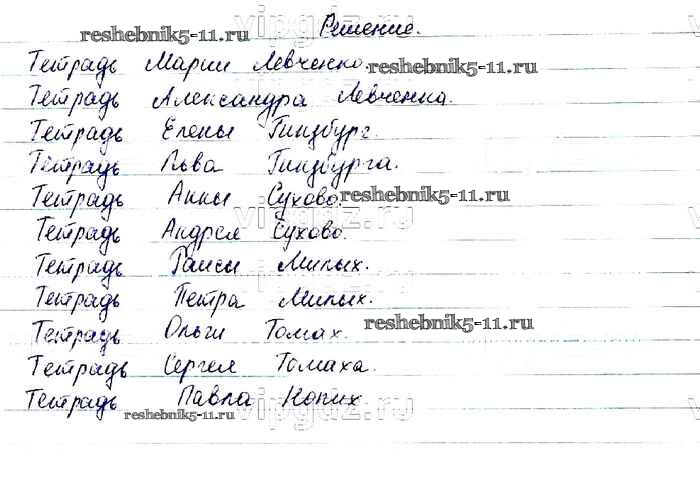 reshebnik5-11.ru Решение.
Тетрадь Марии Левченко. reshebnik5-11.ru
Тетрадь Александра Левченка.
Тетрадь Елены Гинзбург.
Тетрадь Льва Гинзбурга.
Тетрадь Анны Сухово. reshebnik5-11.ru
vipgdz.ru
Тетрадь Андрея Сухово.
Тетрадь Раисы Милых.
Тетрадь Петра Милых.
Тетрадь Ольги Томах. reshebnik5-11.ru
Тетрадь Сергея Томаха.
Тетрадь Павла Копих
reshebnik5-11.ru vipgdz.ru